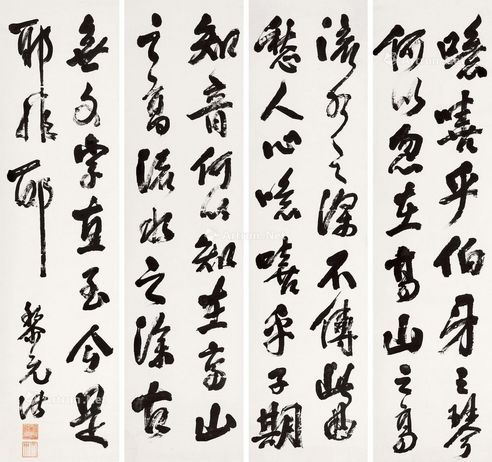 噫嘻乎伯牙之琴
何以忽在高山之高
流水之深不傳此曲
愁人心噫嘻乎子期
知音何以知在高山
之高流水之深古
無文字直至今是
耶非耶
黎元洪